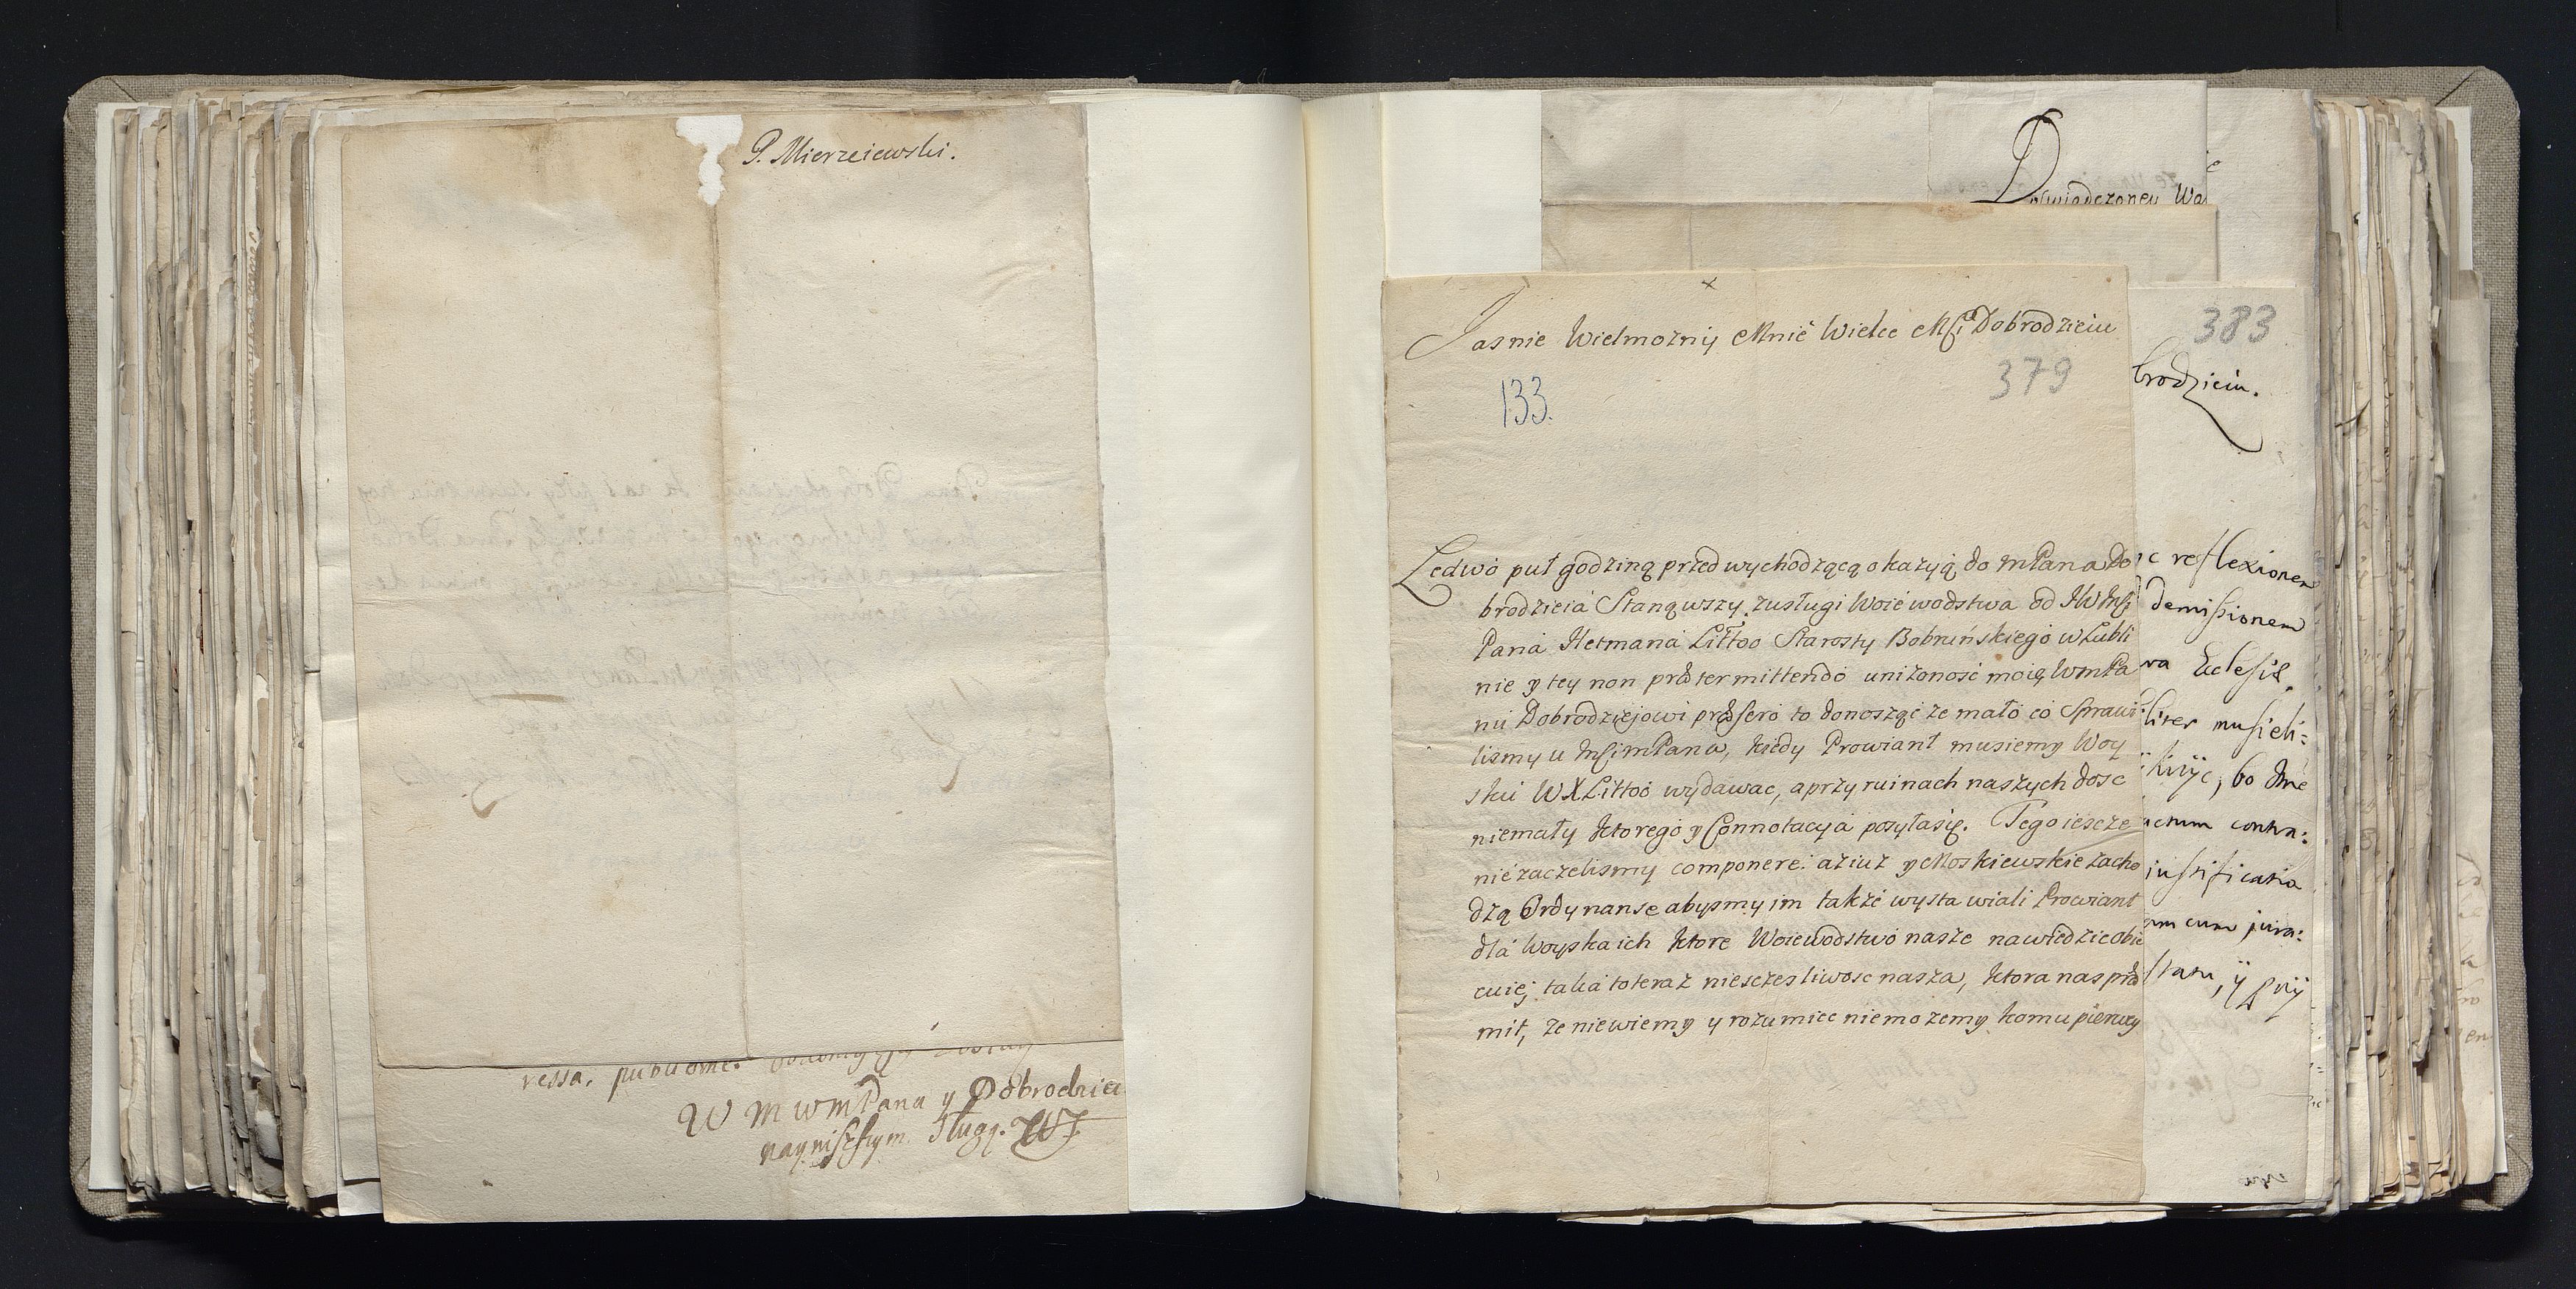 P. Mierzeiewski.
ressa, publiame.
W M WMPana y Dobrodzieia
nayniższym Sługą.
Jasnie Wielmożny Mnie Wielce Mśi Dobrodzieiu
379
133.
Ledwo puł godziną przed wychodzącą okazyią do mPana Do
brodzieia Stanąwszy zusługi Woiewodstwa od JWMśi
Pana Hetmana Littoo Starosty Bobruńskiego w Lubli
nie y tey non prætermittendo uniżonosć moię WmPa
nu Dobrodziejowi præfero to donosząc że mało co Sprawi
lismy u JmśimPana, kiedy Prowiant musiemy Woy
sku WXLittoo wydawac, a przy ruinach naszych dosc
niemały ktorego y Connotacyia posyłasię. Tego iescze
niezaczelismy componere: aż iuż y Moskiewskie zacho
dzą Ordynanse abysmy im także wystawiali Prowiant
dla Woyska ich ktore Woiewodstwo nasze nawiedzic obie
cuię, taka to teraz niesczesliwosc nasza, ktora nas præ
mit, że niewiemy y rozumiec niemożemy komu pierwey
Doswiadczoney Wa
383
brodzieiu.
c reflexionem
demissionem
va Eclesiæ
liter musieli:
kryc, bo dwie
ctum contra:
iustificatia
um cum jura:
statu, ÿ przÿ